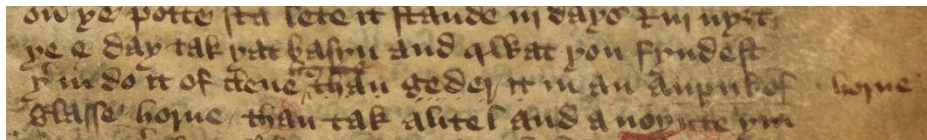 on þe potte sta lete it stande iii days & iii nyȝt
þe e day tak þat basyn and qwat þou fyndest
þ in do it of clene than geder it in an aupuk of horne
glasse horne than tak a litel and a noynte þin